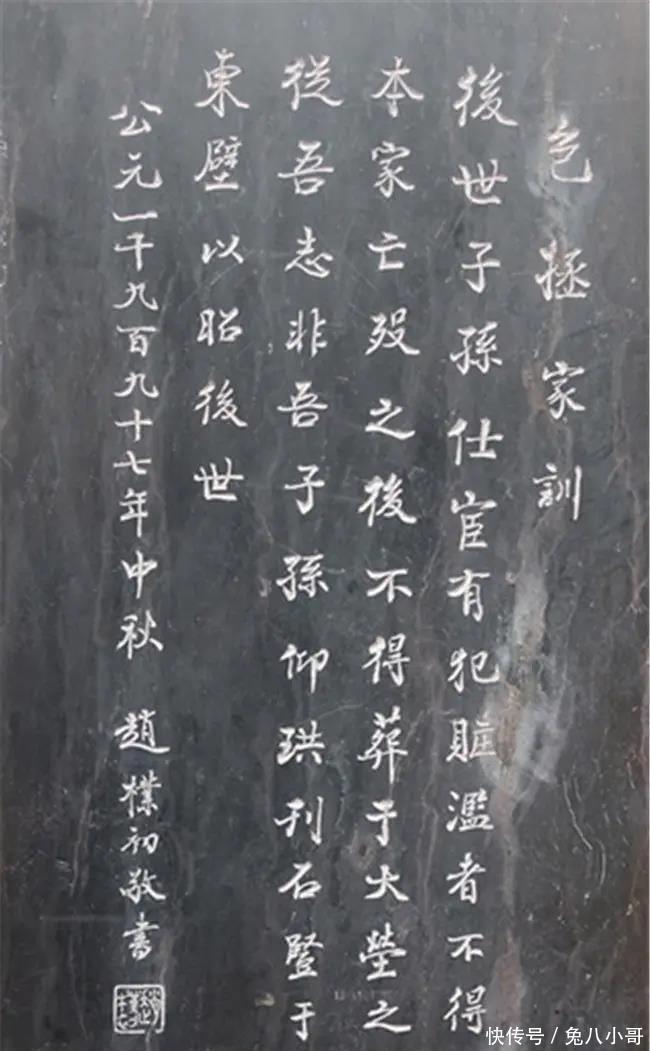 包拯家訓
後世子孫仕宦有犯賍濫者不得
本家亡歿之後不得葬于大塋之
從吾志非吾子孫仰珙刊石豎于
東壁以昭後世
公元一千九百九十七年中秋 趙樸初敬書
快传号/兔八小哥